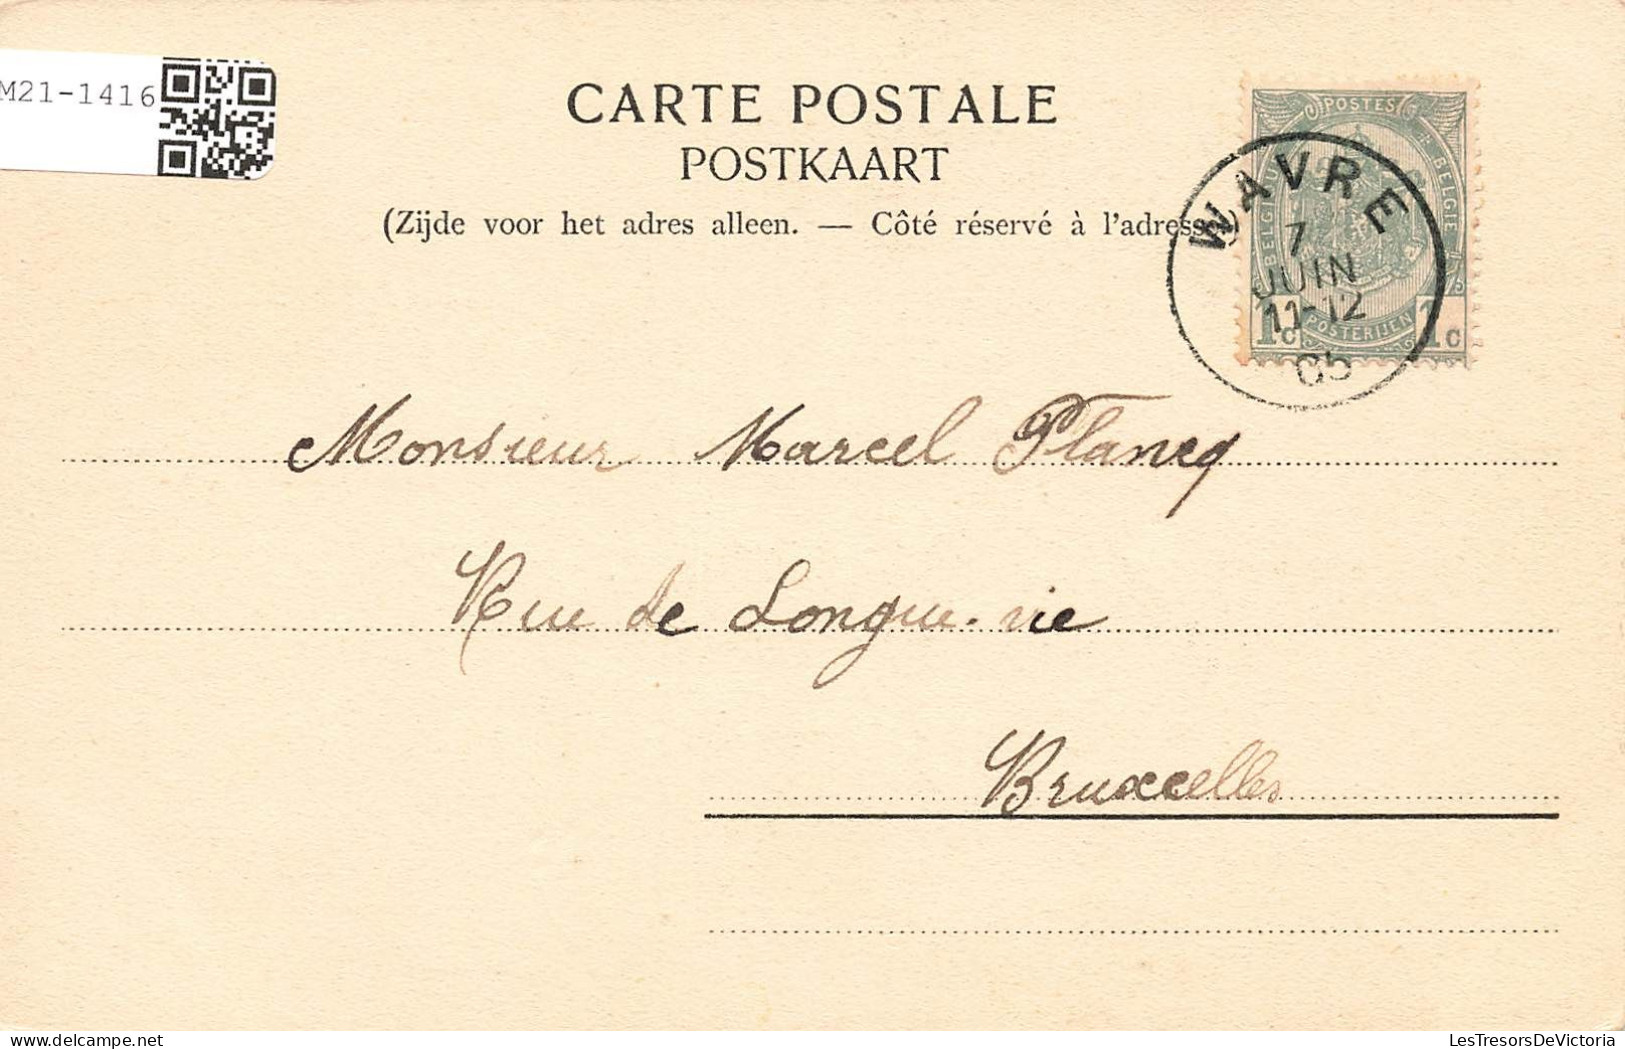 M21-1416
CARTE POSTALE
POSTKAART
(Zijde voor het adres alleen. — Côté réservé à l'adresse)
POSTES
BELGIQUE
BELGIE
POSTERIJEN
1c 1c
WAVRE
7
JUIN
11-12
05
Monsieur Marcel Plancq
Rue de Longue-vie
Bruxcelles
LesTresorsDeVictoria